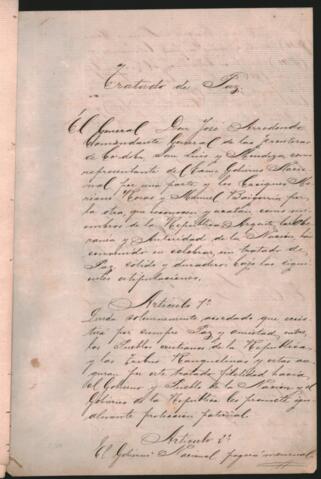 Tratado de Paz.
El General Don José Arredondo
Comandante General de las fronteras
de Cordoba, San Luis y Mendoza, como
representante del Exmo Gobierno Nacio
nal por una parte y los Caciques Ma
riano Rosas y Manuel Baigorria por
la otra, que reconocen y acatan como mi
embros de la República Argentina la Sobe
rania y Autoridad de la Nacion, han
convenido en celebrar un tratado de
Paz sólido y duradero bajo las sigui
entes estipulaciones.
Articulo 1º
Queda solemnemente acordado que ecsis
tirá por siempre Paz y amistad, entre
los Pueblos cristianos de la República
y las Tribus Ranquelinas y estas ase
guran por este tratado fidelidad hacia
el Gobierno y Pueblo de la Nacion y el
Gobierno de la República les promete igu
almente proteccion paternal.
Articulo 2º
El Gobierno Nacional pagará mensual